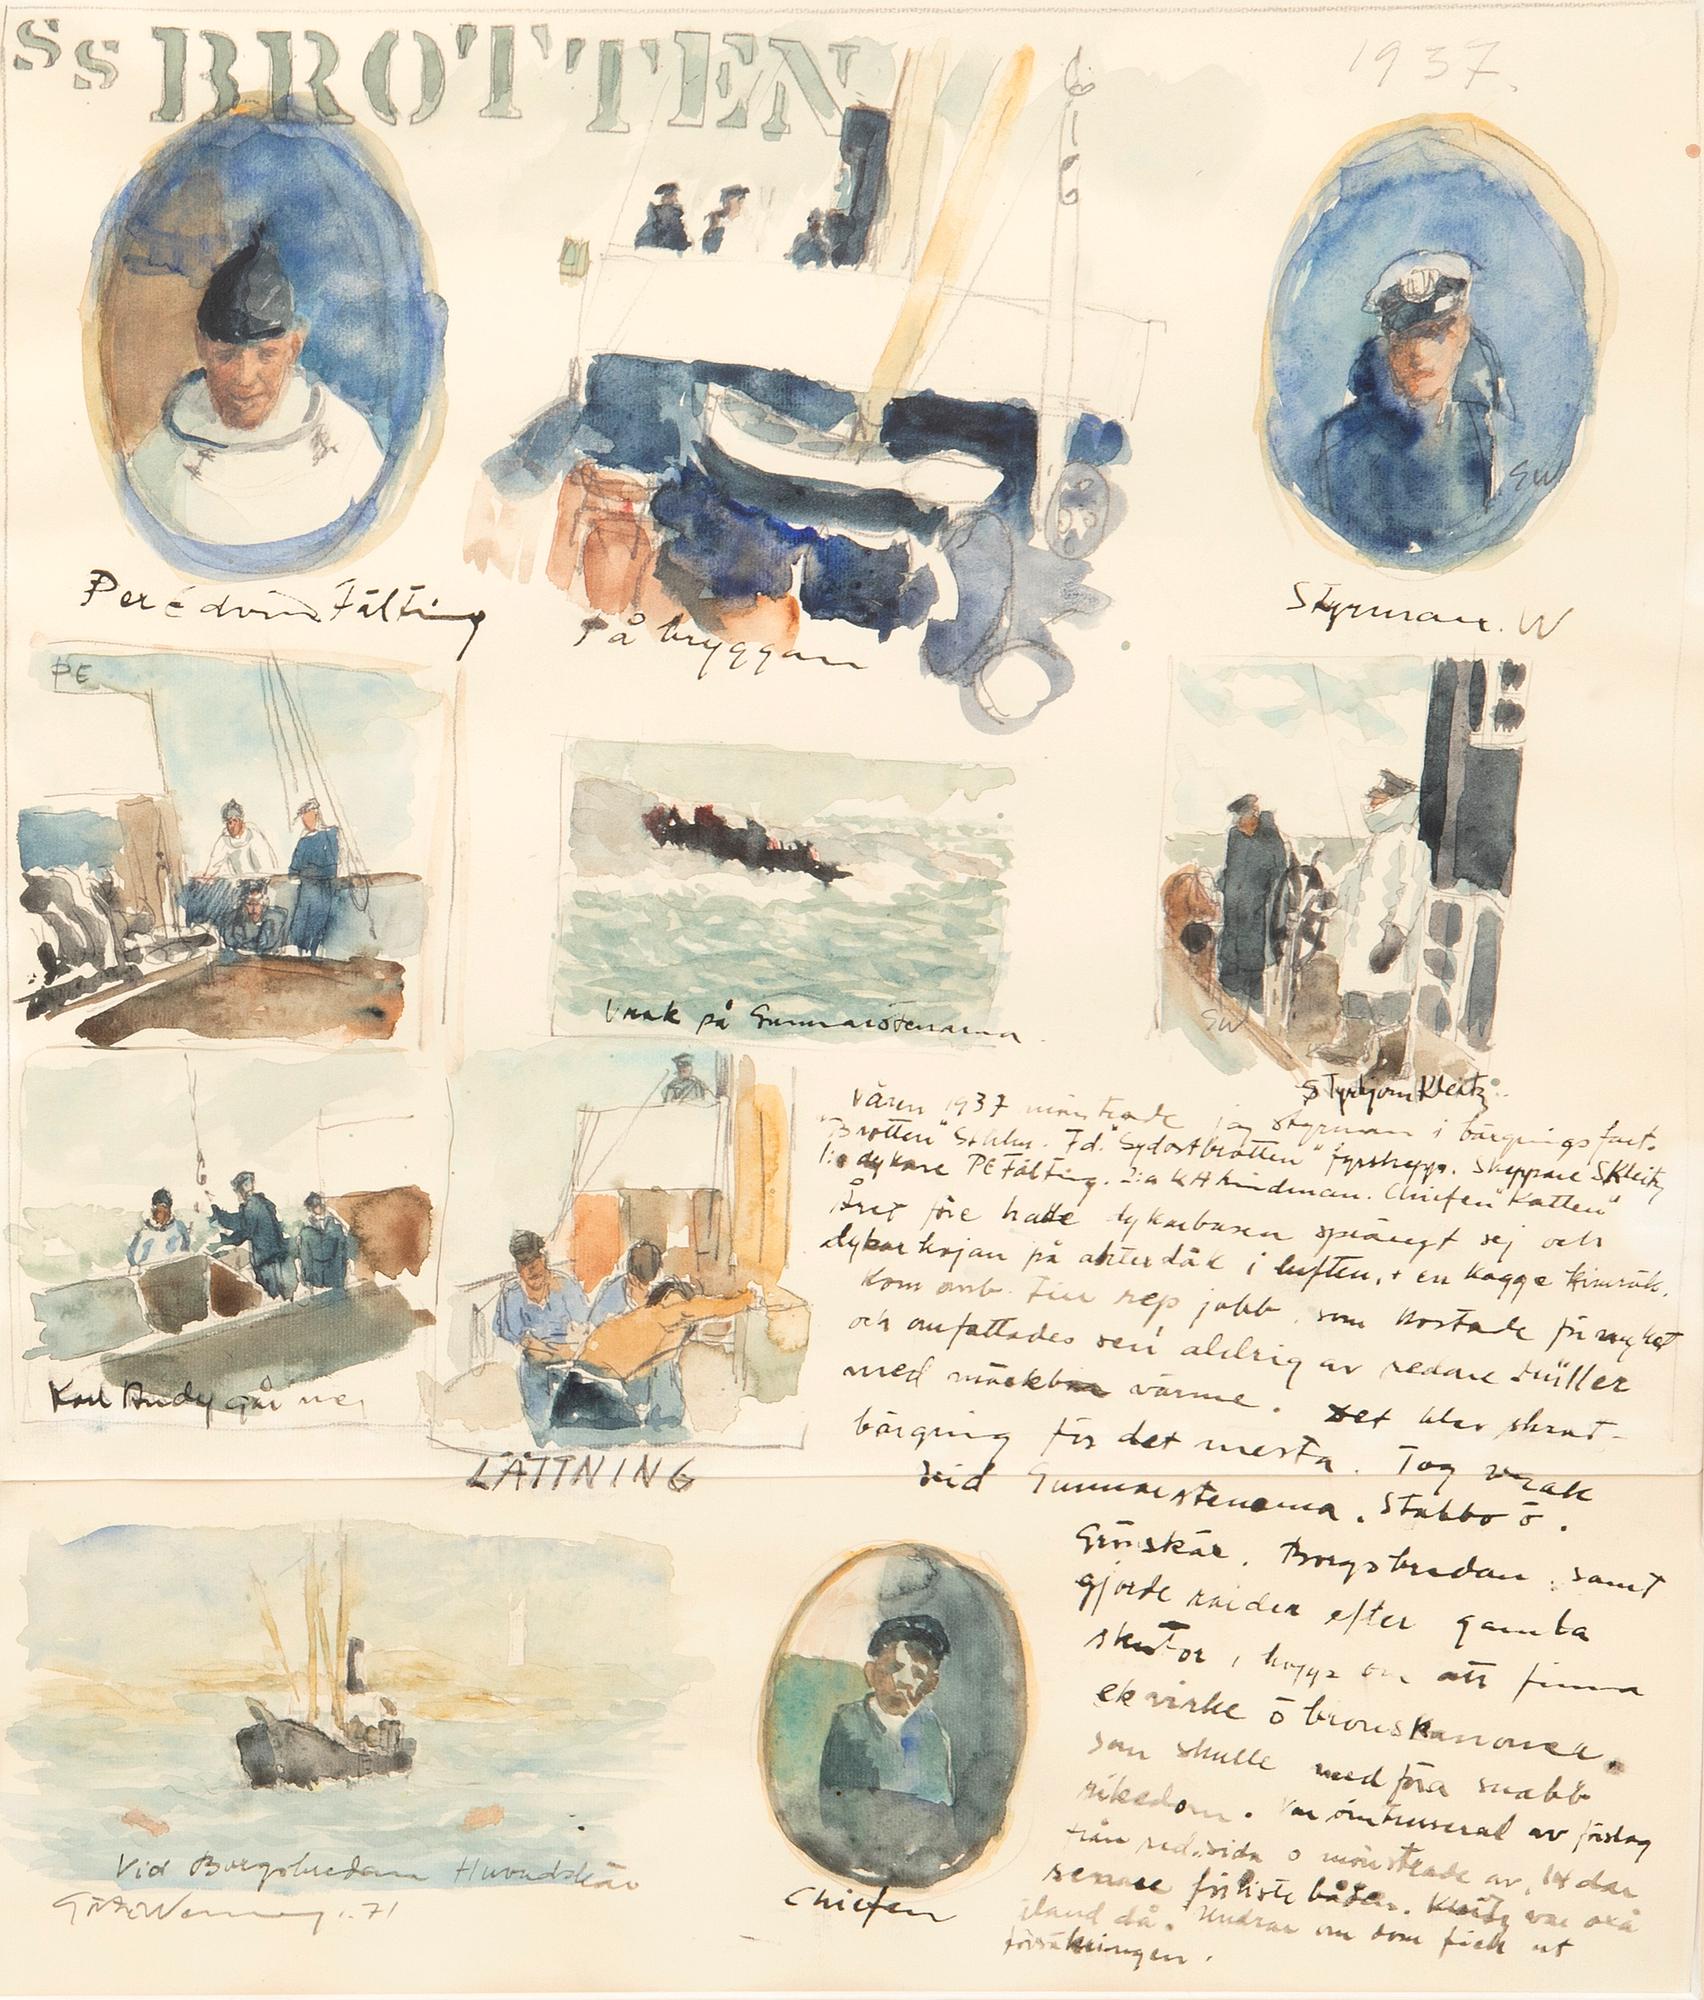 SS BROTTEN
1937.
Per Edvin Fälting
På bryggan
Styrman. W
GW
PE
Vrak på Gunnarstenarna
GW
Styrbjorn Kleitz
Karl Andy går ner
LÄTTNING
Våren 1937 mönstrade jag styrman i bärgningsfart.
"Brotten" Sthlm. Fd. "Sydostbrotten" fyrskepp. Skeppare SKleitz
1:a dykare PE Fälting. 2:a KA Lindman. Chiefen "Katten"
Året före hade dykarbasen sprängt sej och
dykarkojan på akterdäk i luften, + en kagge kimrök.
Kom omb. för rep jobb, som kostade för myket
och omfattades sen aldrig av redare Müller
med märkbar värme. Det blev skrot-
bärgning för det mesta. Tog vrak
vid Gunnarstenarna. Stabbo ö.
Grönskär. Borgsbredan. samt
gjorde raider efter gamla
skutor, i hopp om att finna
ekvirke ö bronskanoner.
som skulle medföra snabb
rikedom. Var ointresserad av förslag
från red.sida o mönstrade av, 14 dar
senare förliste båten. Kleitz var oxå
iland då. Undrar om dom fick ut
försäkringen.
Vid Borgsbredan Huvudskär
Götz Werneng. 71
Chiefen